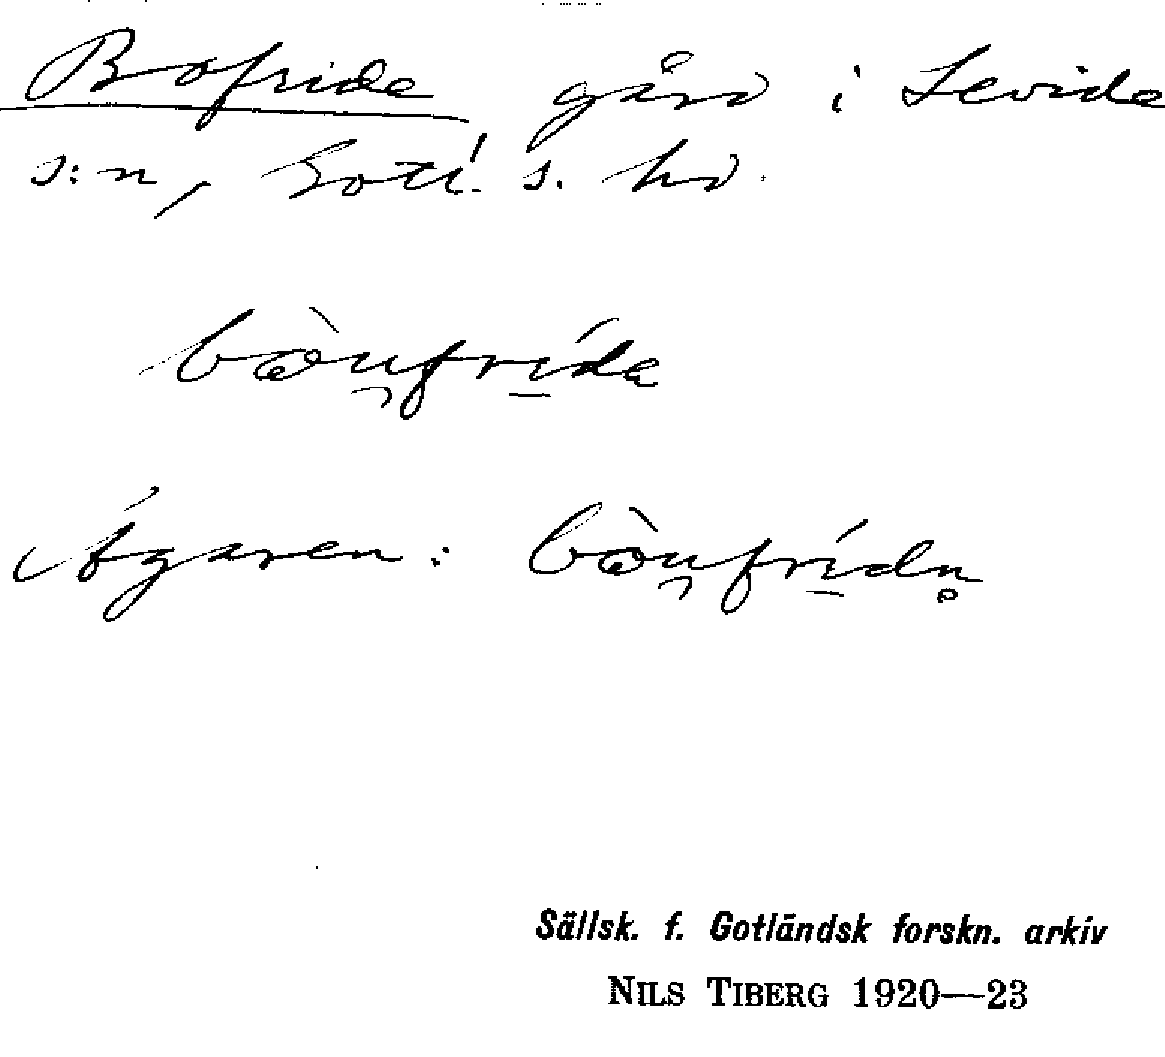 Bofride gård i Levide
s:n, Gotl. s. hd.
bòu̯frí̱da
Ägaren: bòu̯frí̱dn̥
Sällsk. f. Gotländsk forskn. arkiv
NILS TIBERG 1920—23